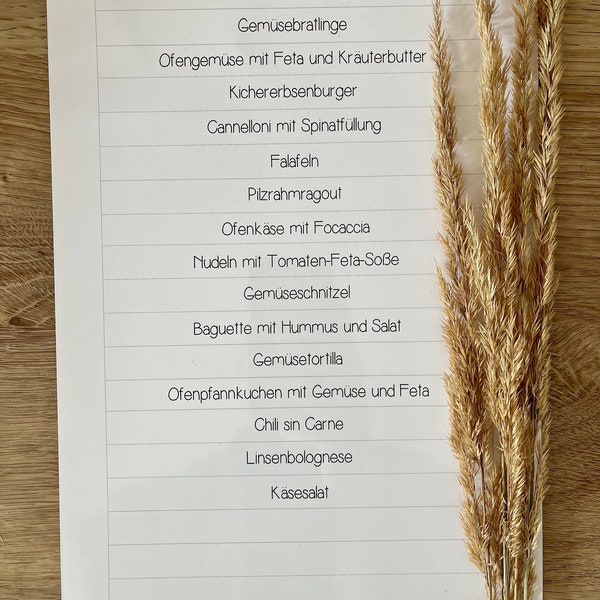 Gemüsebratlinge
Ofengemüse mit Feta und Kräuterbutter
Kichererbsenburger
Cannelloni mit Spinatfüllung
Falafeln
Pilzrahmragout
Ofenkäse mit Focaccia
Nudeln mit Tomaten-Feta-Soße
Gemüseschnitzel
Baguette mit Hummus und Salat
Gemüsetortilla
Ofenpfannkuchen mit Gemüse und Feta
Chili sin Carne
Linsenbolognese
Käsesalat